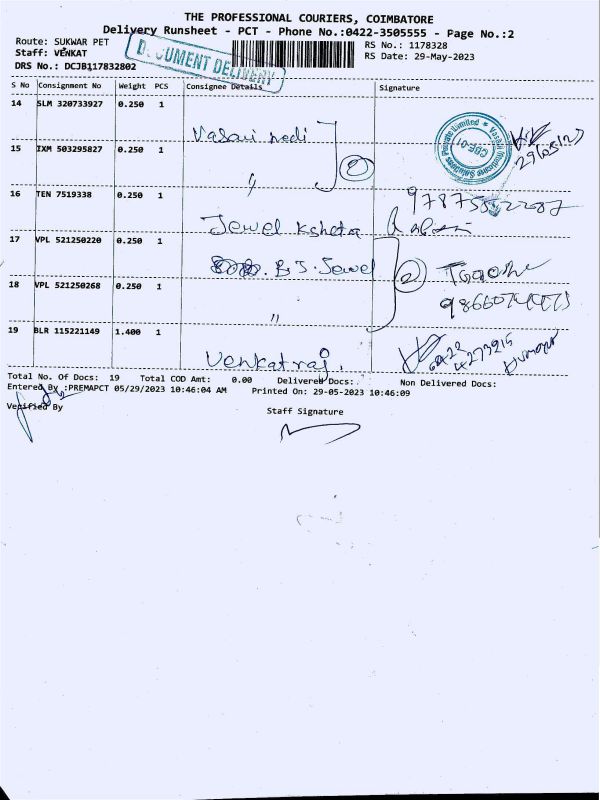 THE PROFESSIONAL COURIERS, COIMBATORE
Delivery Runsheet - PCT - Phone No.:0422-3505555 - Page No.:2
Route: SUKWAR PET
RS No.: 1178328
Staff: VENKAT
RS Date: 29-May-2023
DOCUMENT DELIVERY
DRS No.: DCJB117832802
S No Consignment No Weight PCS Consignee Details Signature
14 SLM 320733927 0.250 1
Vasavi medi
15 IXM 503295827 0.250 1
2
"
29/05/23
16 TEN 7519338 0.250 1
Jewel Kshetra
17 VPL 521250220 0.250 1
B.J. Jewel
2
18 VPL 521250268 0.250 1
"
19 BLR 115221149 1.400 1
Venkatraj.
Total No. Of Docs: 19 Total COD Amt: 0.00 Delivered Docs: Non Delivered Docs:
Entered By :PREMAPCT 05/29/2023 10:46:04 AM Printed On: 29-05-2023 10:46:09
Verified By
Staff Signature